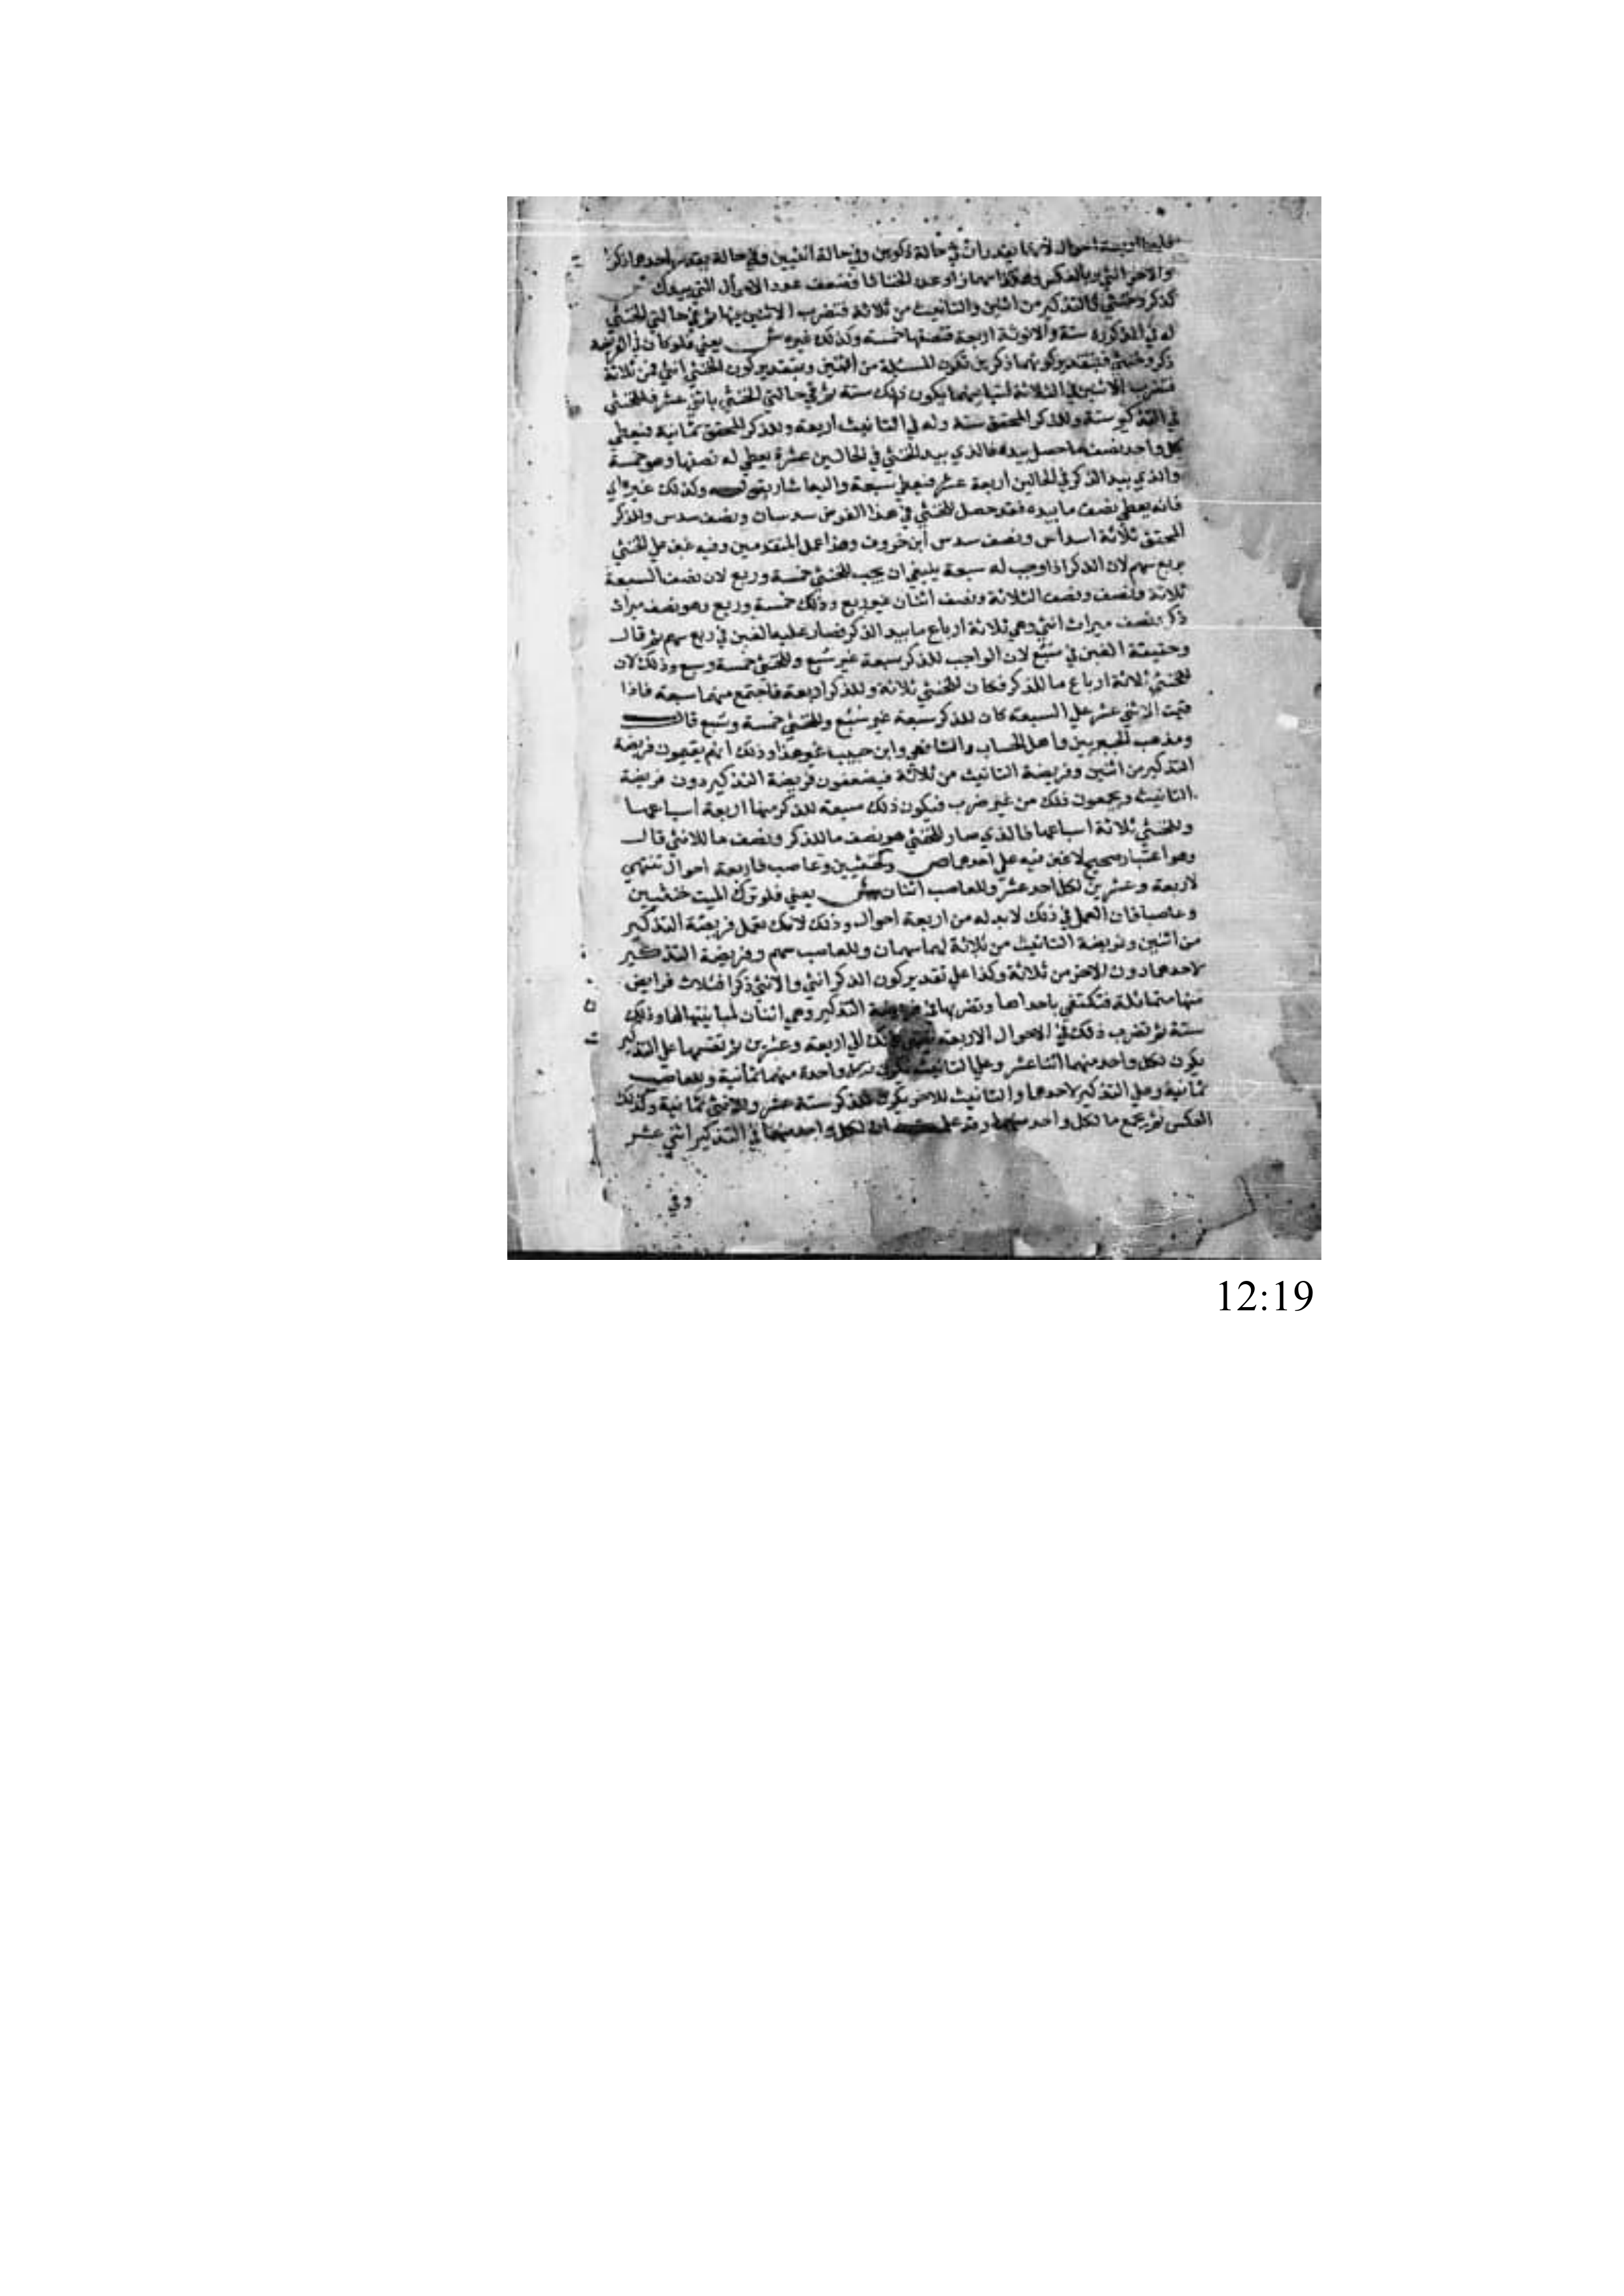 فلهما اربعة احوال لانهما يقدران في حالة ذكرين وفي حالة انثيين وفي حالة يقدر احدهما ذكرا
والاخر انثي وبالعكس وهكذا مهما زاد عدد الخناثا فضعف عدد الاحوال التي بيدك ص
كذكر وخنثي فالتذكير من اثنين والتانيث من ثلاثة فتضرب الاثنين فيها ثم في حالتي الخنثي
له في الذكورة ستة والانوثة اربعة فنصفها خمسة وكذلك غيره ش يعني فلو كان في الفريضة
ذكر وخنثي فبتقدير كونهما ذكرين تكون المسئلة من اثنين وبتقدير كون الخنثي انثي فمن ثلاثة
فتضرب الاثنين في الثلاثة لتباينهما يكون ذلك ستة ثم في حالتي الخنثي باثني عشر فللخنثي
في التذكير ستة وللذكر المحقق ستة وله في التانيث اربعة وللذكر المحقق ثمانية فيعطي
كل واحد نصف ما حصل بيده فالذي بيد الخنثي في الحالين عشرة يعطي له نصفها وهو خمسة
والذي بيد الذكر في الحالين اربعة عشر فيعطي سبعة واليها اشار بقوله وكذلك غيره اي
فانه يعطي نصف ما بيده فقد حصل للخنثي في هذا الفرض سدسان ونصف سدس وللذكر
المحقق ثلاثة اسداس ونصف سدس ابن خروف وهذا عمل المتقدمين وفيه غبن علي الخنثي
بربع سهم لان الذكر اذا وجب له سبعة ينبغي ان يجب للخنثي خمسة وربع لان نصف السبعة
ثلاثة ونصف ونصف الثلاثة ونصف اثنان غير ربع وذلك خمسة وربع وهو نصف ميراث
ذكر ونصف ميراث انثي وهي ثلاثة ارباع ما بيد الذكر فصار عليه الغبن في ربع سهم ثم قال
وحقيقة الغبن في سبع لان الواجب للذكر سبعة غير سبع وللخنثي خمسة وسبع وذلك لان
للخنثي ثلاثة ارباع ما للذكر فكان للخنثي ثلاثة وللذكر اربعة فاجتمع منهما سبعة فاذا
قسمت الاثني عشر علي السبعة كان للذكر سبعة غير سبع وللخنثي خمسة وسبع قال
ومذهب واهل الحساب والشافعي وابن حبيب غير هذا وذلك انهم يقيمون فريضة
التذكير من اثنين وفريضة التانيث من ثلاثة فيضعفون فريضة التذكير دون فريضة
التانيث ويجمعون ذلك من غير ضرب فيكون ذلك سبعة للذكر منها اربعة اسباعها
وللخنثي ثلاثة اسباعها فالذي صار للخنثي هو نصف ما للذكر ونصف ما للانثي قال
وهو اعتبار صحيح لا غبن فيه علي احدهما ص وكخنثيين وعاصب فاربعة احوال تنتهي
لاربعة وعشرين لكل احد عشر وللعاصب اثنان ش يعني فلو ترك الميت خنثيين
وعاصبا فان العمل في ذلك لا بد له من اربعة احوال وذلك لانك تعمل فريضة التذكير
من اثنين وفريضة التانيث من ثلاثة لهما سهمان وللعاصب سهم وفريضة التذكير
لاحدهما دون الاخر من ثلاثة وكذا علي تقدير كون الذكر انثي والانثي ذكرا فثلاث فرايض
منها متماثلة فتكتفي باحداها وتضربها في فريضة التذكير وهي اثنان لمباينتها لها وذلك
ستة ثم تضرب ذلك في الاحوال الاربعة ذلك الي اربعة وعشرين ثم تقسمها علي التذكير
يكون لكل واحد منهما اثنا عشر وعلي التانيث يكون لكل واحدة منهما ثمانية وللعاصب
ثمانية وعلي التذكير لاحدهما والتانيث للاخر يكون للذكر ستة عشر وللانثي ثمانية وكذلك
العكس ثم يجمع ما لكل واحد منهما وقد علمت ان لكل واحد منهما في التذكير اثني عشر
وفي
12:19